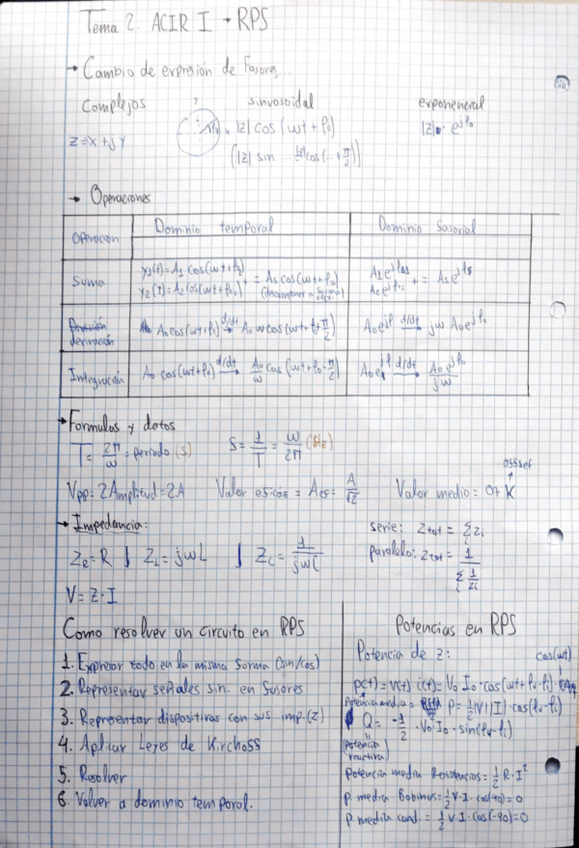 Tema 2. ACIR I → RPS
→ Cambio de expresión de fasores
Complejos
z=x+jy
sinusoidal
|z| cos(wt+φ₀)
exponencial
|z|·e^jφ₀
→ Operaciones
Operación | Dominio temporal | Dominio fasorial
Suma | y₁(t)=A₁ cos(wt+φ₁)
y₂(t)=A₂ cos(wt+φ₂) = A₃ cos(wt+φ₃)
derivación | A₀ cos(wt+φ₀) d/dt→ A₀ w cos(wt+φ₀+π/2) | A₀e^jφ d/dt→ jw A₀e^jφ₀
Integración | A₀ cos(wt+φ₀) d/dt→ A₀/w cos(wt+φ₀-π/2) | A₀e^jφ d/dt→ A₀e^jφ₀/jw
→ Formulas y datos
T = 2π/w = periodo (s) f = 1/T = w/2π (Hz)
offset
Vpp=2Amplitud=2A Valor eficaz = Aef = A/√2 Valor medio = 0+K
→ Impedancia:
Z_R=R | Z_L=jwL | Z_C=1/jwC
V=Z·I
serie: Ztot = Σ Zi
paralelo: Ztot = 1/(Σ 1/Zi)
Como resolver un circuito en RPS
1. Expresar todo en la misma forma (sin/cos)
2. Representar señales sin. en fasores
3. Representar dispositivos con sus imp.(z)
4. Aplicar Leyes de Kirchoff
5. Resolver
6. Volver a dominio temporal.
Potencias en RPS
Potencia de z: cos(wt)
p(t)=v(t)·i(t)=V₀ I₀·cos(wt+φv-φi)
Potencia media = P=½|V||I| cos(φv-φi)
Q = -½·V₀ I₀·sin(φv-φi)
(potencia reactiva)
Potencia media Resistencias = ½ R·I²
P. media Bobinas = ½ V·I·cos(90)=0
P media cond. = ½ V I·cos(-90)=0